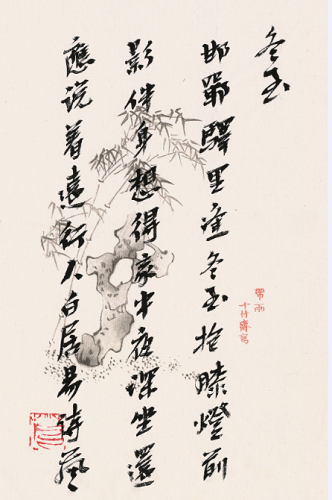 冬至
邯鄲驛里逢冬至抱膝燈前
影伴身想得家中夜深坐還
應说着遠行人白居易詩
帶雨
十竹齋寫